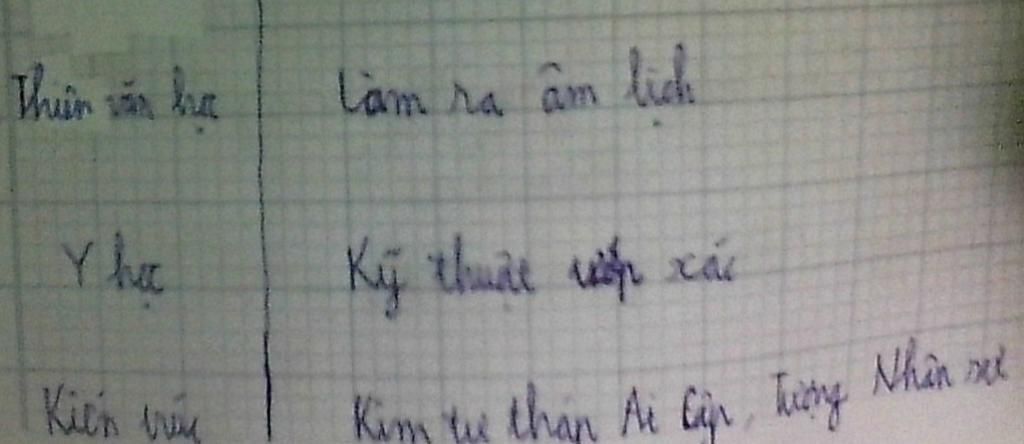 Thiên văn học Làm ra âm lịch
Y học Kỹ thuật ướp xác
Kiến trúc Kim tự tháp Ai Cập, Tượng Nhân sư